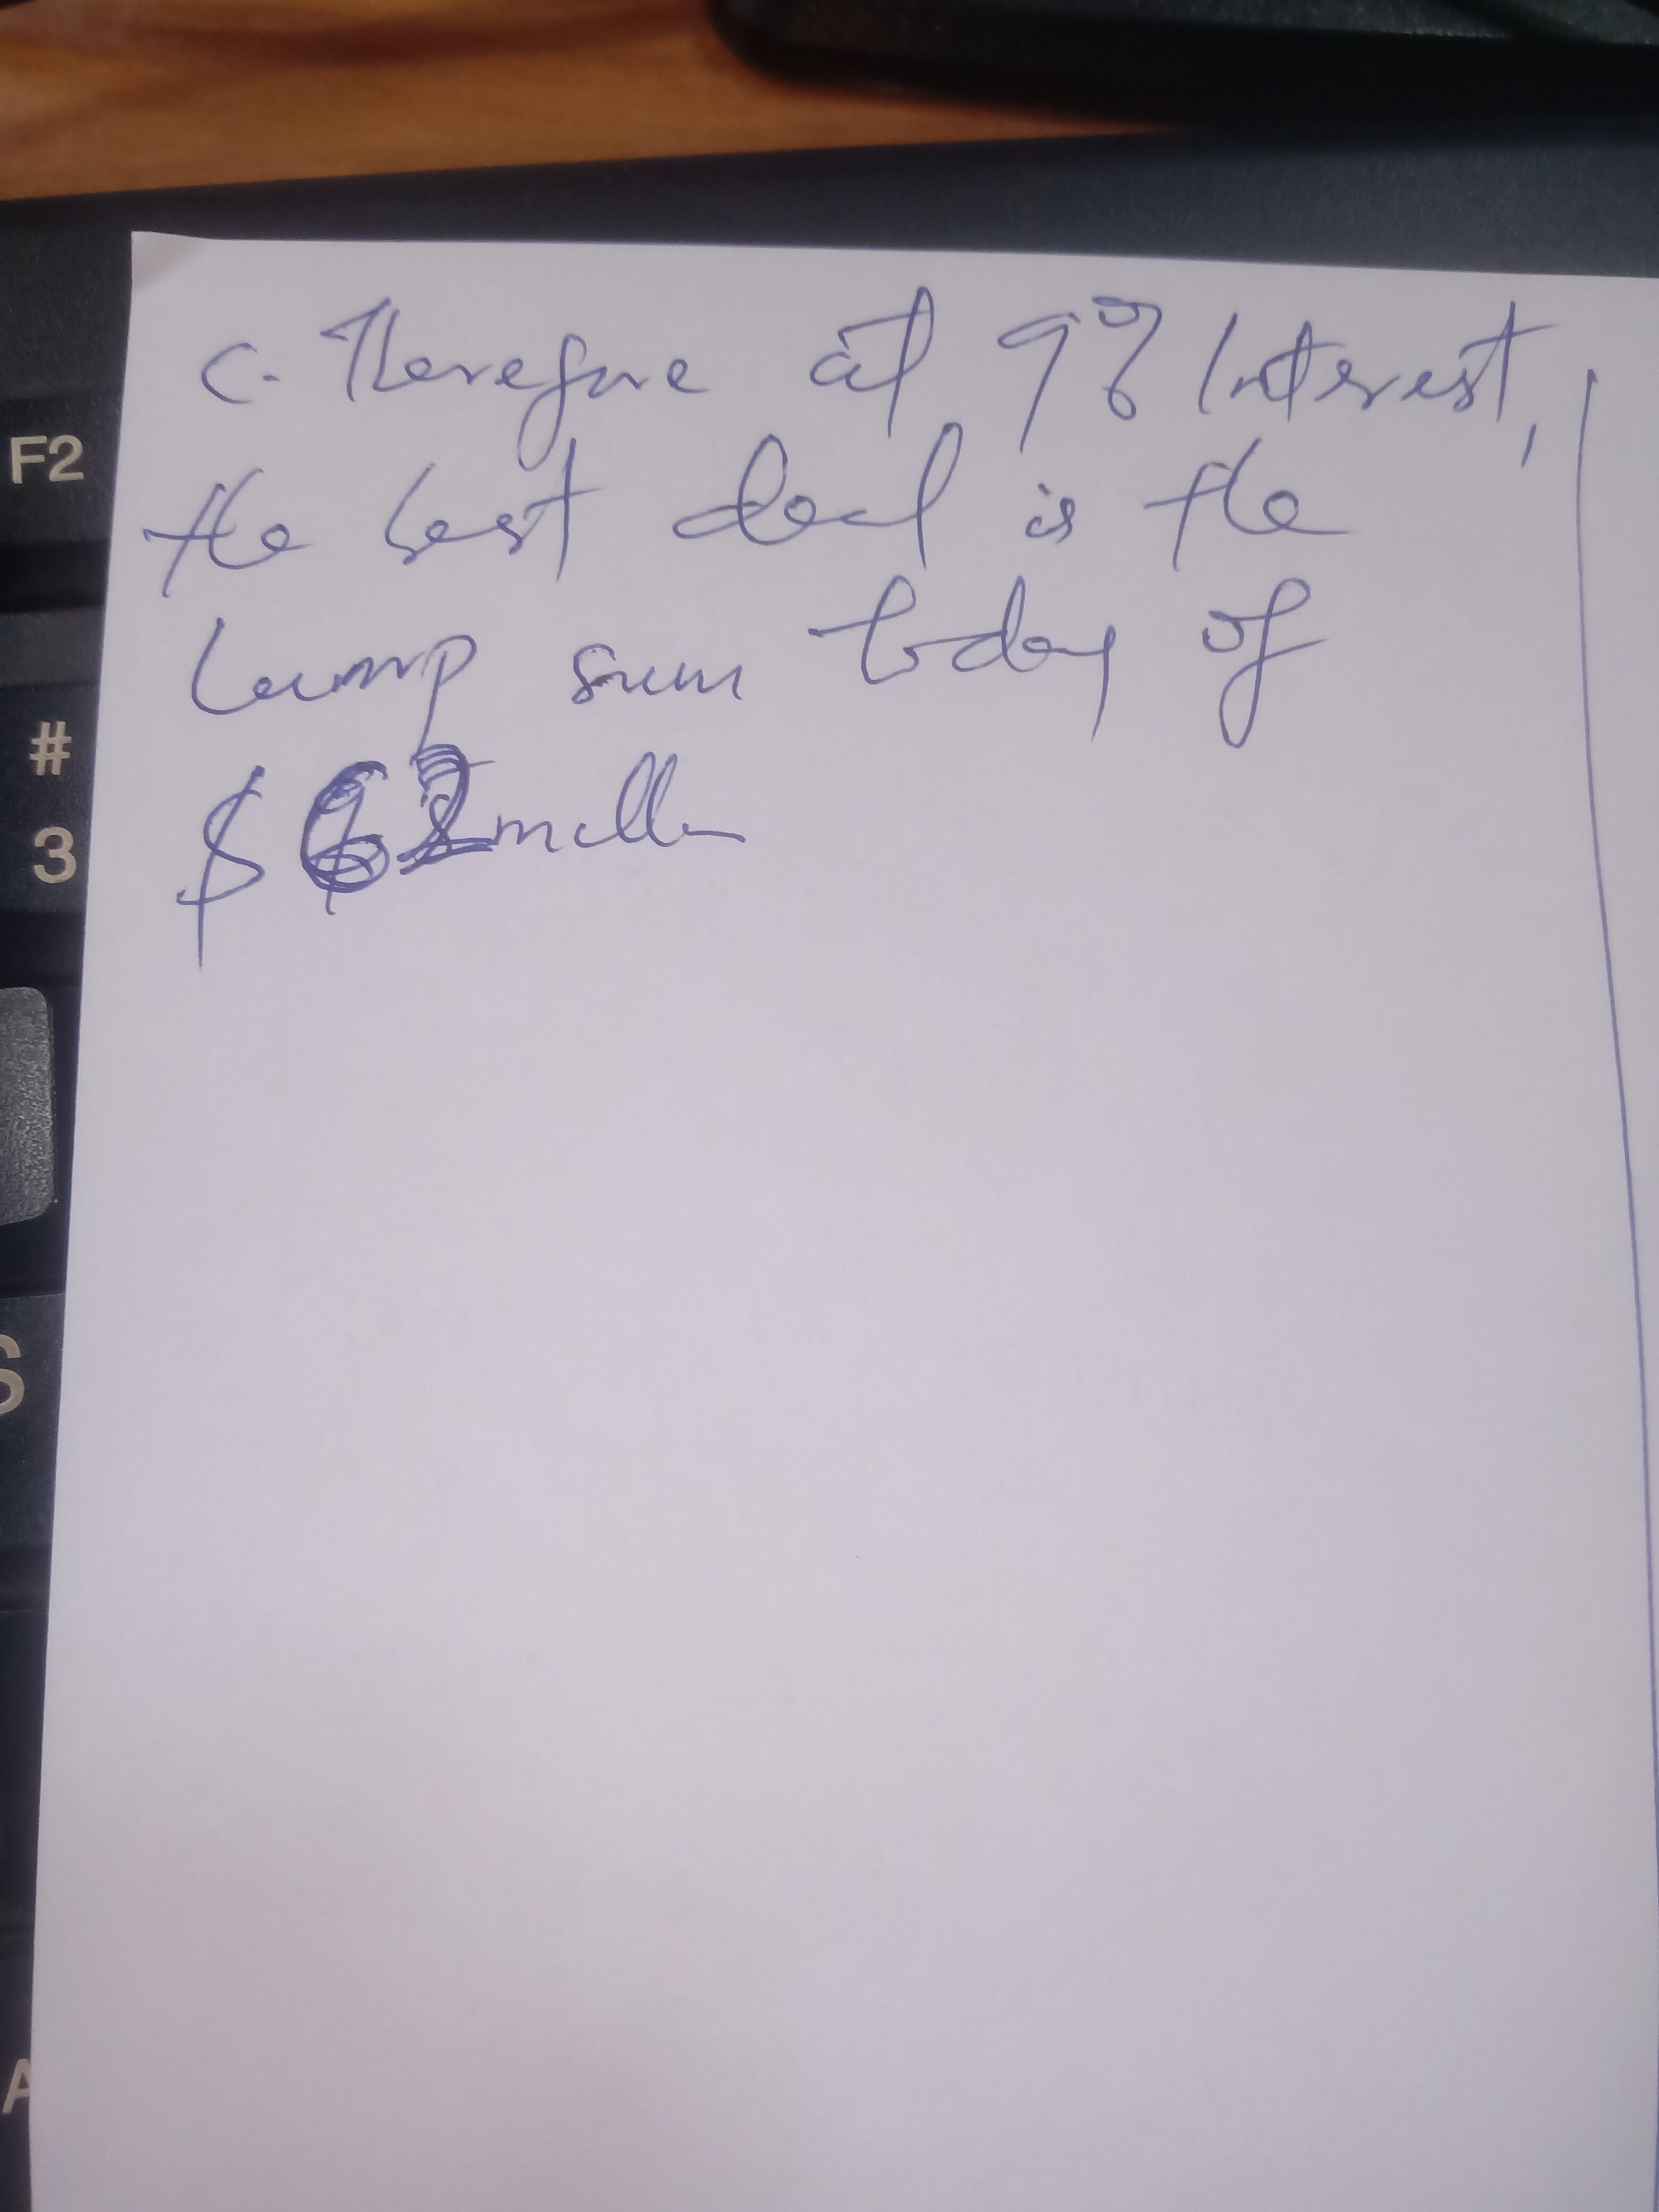 c. Therefore at 9% Interest,
the best deal is the
lump sum today of
$ 62 millin
F2
#
3
S
A